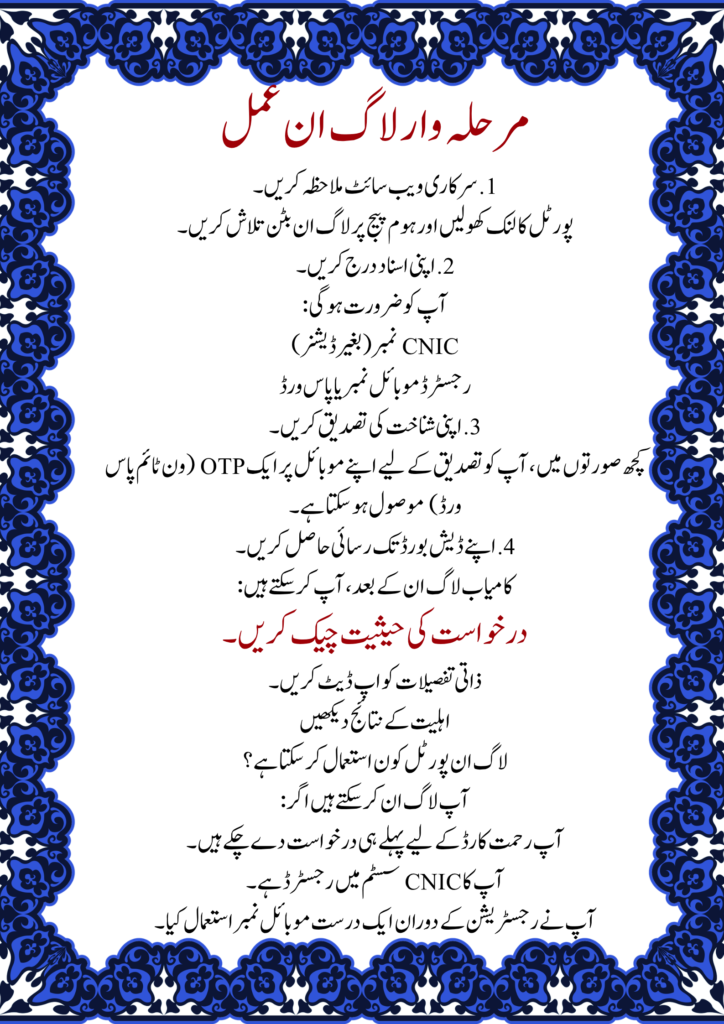 مرحلہ وار لاگ ان عمل
1. سرکاری ویب سائٹ ملاحظہ کریں۔
پورٹل کا لنک کھولیں اور ہوم پیج پر لاگ ان بٹن تلاش کریں۔
2. اپنی اسناد درج کریں۔
آپ کو ضرورت ہوگی:
CNIC نمبر (بغیر ڈیشنر)
رجسٹرڈ موبائل نمبر یا پاس ورڈ
3. اپنی شناخت کی تصدیق کریں۔
کچھ صورتوں میں، آپ کو تصدیق کے لیے اپنے موبائل پر ایک OTP (ون ٹائم پاس
ورڈ) موصول ہو سکتا ہے۔
4. اپنے ڈیش بورڈ تک رسائی حاصل کریں۔
کامیاب لاگ ان کے بعد، آپ کر سکتے ہیں:
درخواست کی حیثیت چیک کریں۔
ذاتی تفصیلات کو اپ ڈیٹ کریں۔
اہلیت کے نتائج دیکھیں
لاگ ان پورٹل کون استعمال کر سکتا ہے؟
آپ لاگ ان کر سکتے ہیں اگر:
آپ رحمت کارڈ کے لیے پہلے ہی درخواست دے چکے ہیں۔
آپ کا CNIC سسٹم میں رجسٹرڈ ہے۔
آپ نے رجسٹریشن کے دوران ایک درست موبائل نمبر استعمال کیا۔